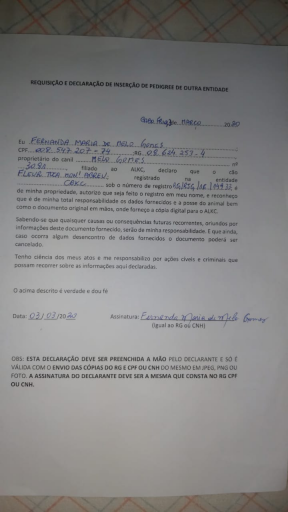 REQUISIÇÃO E DECLARAÇÃO DE INSERÇÃO DE PEDIGREE DE OUTRA ENTIDADE
MARCO 2020
Eu FERNANDA MARIA DE MELO GOMES
CPF RG
proprietário do canil MELO GOMES nº
filiado ao ALKC, declaro que o cão
FLEUR registrado na entidade
CBKC, sob o número de registro é
de minha propriedade, autorizo que seja feito o registro em meu nome, e reconheço
que é de minha total responsabilidade os dados fornecidos e a posse do animal bem
como o documento original em mãos, onde forneço a cópia digital para o ALKC.
Sabendo-se que quaisquer causas ou consequências futuras recorrentes, oriundos por
informações deste documento fornecido, serão de minha responsabilidade. E que ainda,
caso ocorra algum desencontro de dados fornecidos o documento poderá ser
cancelado.
Tenho ciência dos meus atos e me responsabilizo por ações cíveis e criminais que
possam recorrer sobre as informações aqui declaradas.
O acima descrito é verdade e dou fé
Data: 03/03/2020 Assinatura: Fernanda Maria de Melo Gomes
(Igual ao RG ou CNH)
OBS: ESTA DECLARAÇÃO DEVE SER PREENCHIDA A MÃO PELO DECLARANTE E SÓ É
VÁLIDA COM O ENVIO DAS CÓPIAS DO RG E CPF OU CNH DO MESMO EM JPEG, PNG OU
FOTO. A ASSINATURA DO DECLARANTE DEVE SER A MESMA QUE CONSTA NO RG CPF
OU CNH.